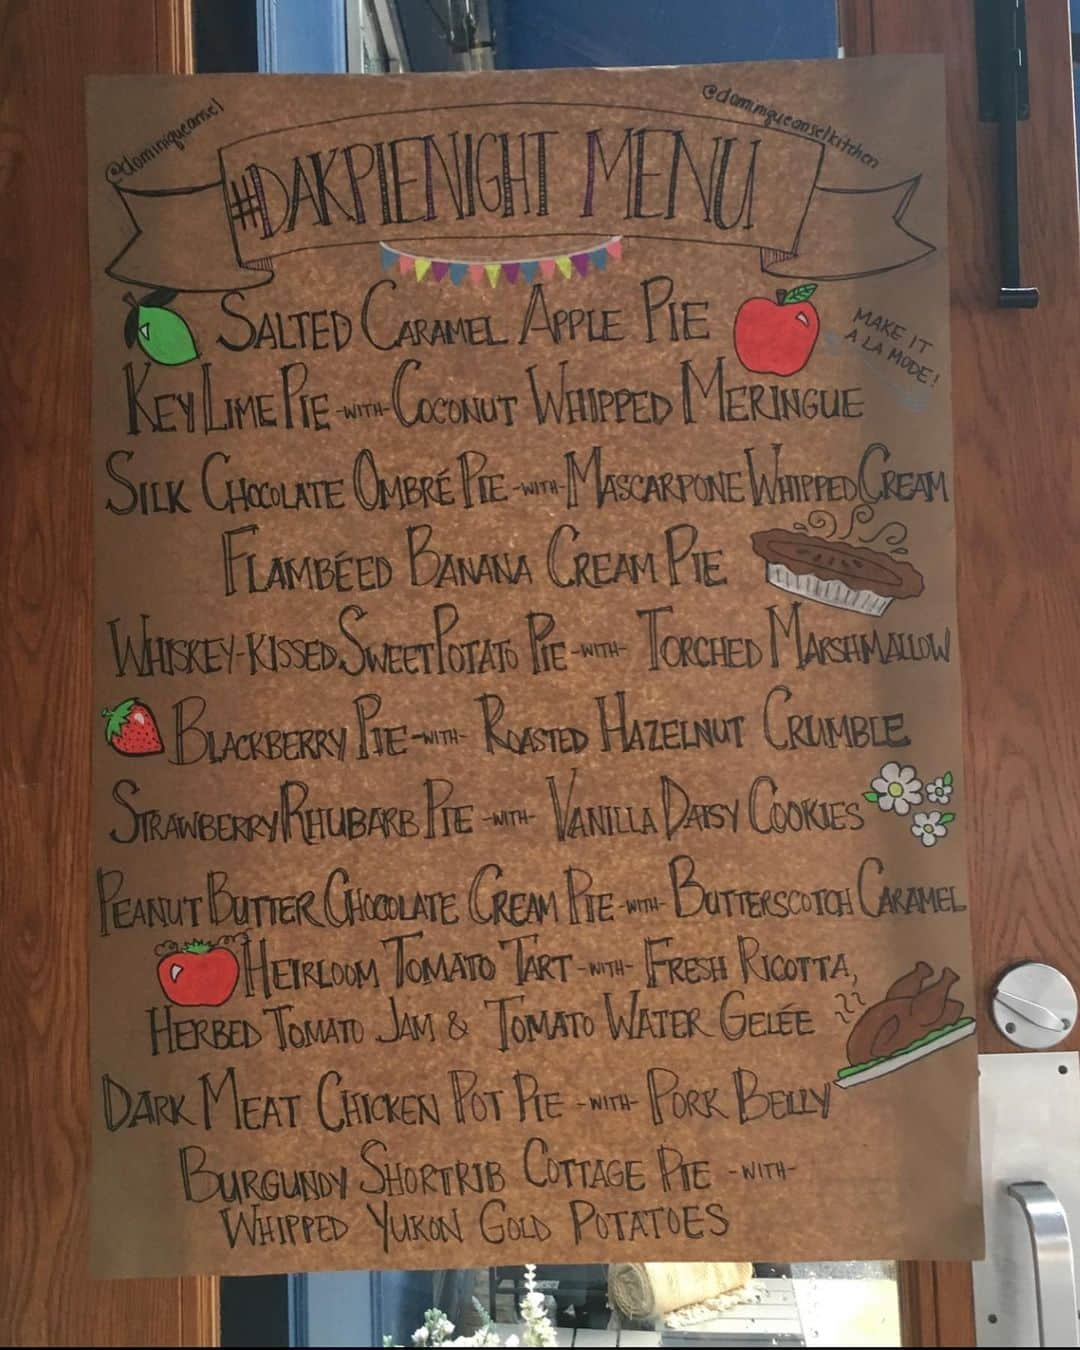 @dominiqueansel
@dominiqueanselkitchen
#DAKPIENIGHT MENU
SALTED CARAMEL APPLE PIE
MAKE IT
A LA MODE!
KEY LIME PIE -WITH- COCONUT WHIPPED MERINGUE
SILK CHOCOLATE OMBRÉ PIE -WITH- MASCARPONE WHIPPED CREAM
FLAMBÉED BANANA CREAM PIE
WHISKEY-KISSED SWEET POTATO PIE -WITH- TORCHED MARSHMALLOW
BLACKBERRY PIE -WITH- ROASTED HAZELNUT CRUMBLE
STRAWBERRY RHUBARB PIE -WITH- VANILLA DAISY COOKIES
PEANUT BUTTER CHOCOLATE CREAM PIE -WITH- BUTTERSCOTCH CARAMEL
HEIRLOOM TOMATO TART -WITH- FRESH RICOTTA,
HERBED TOMATO JAM & TOMATO WATER GELÉE
DARK MEAT CHICKEN POT PIE -WITH- PORK BELLY
BURGUNDY SHORTRIB COTTAGE PIE -WITH-
WHIPPED YUKON GOLD POTATOES